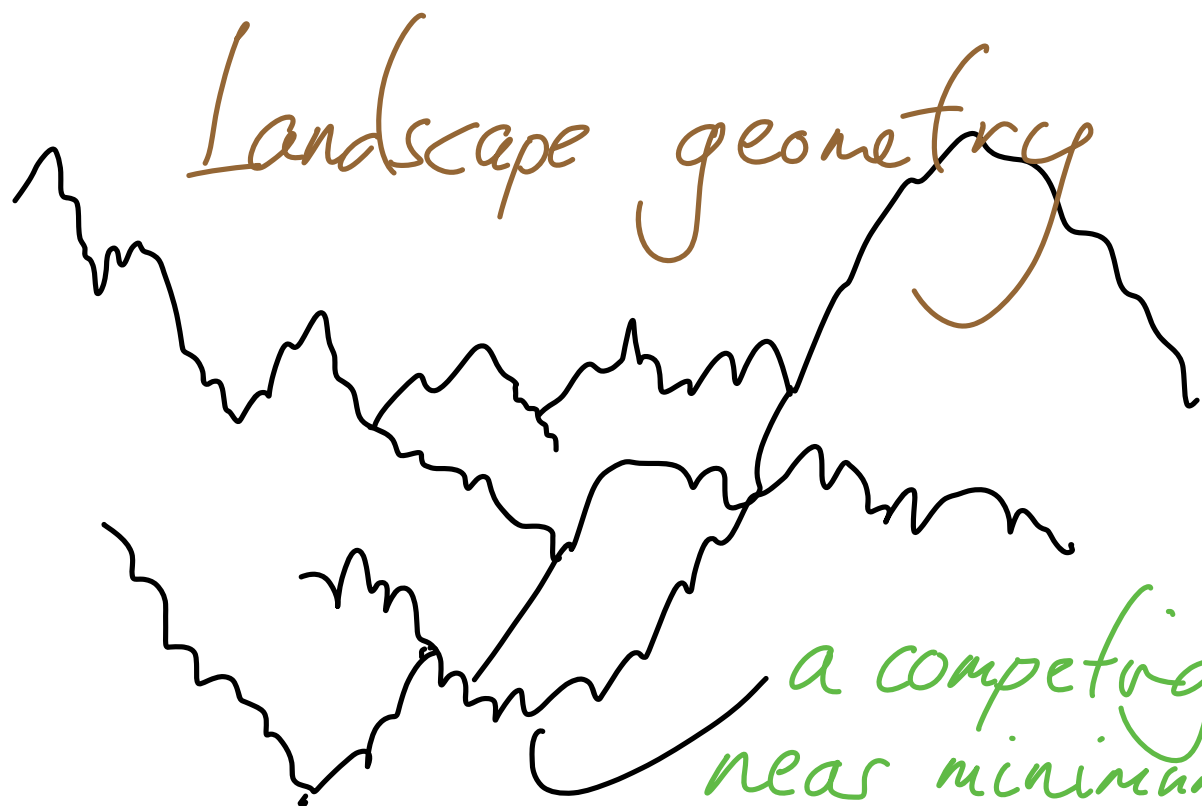 Landscape geometry
a competing
near minimum